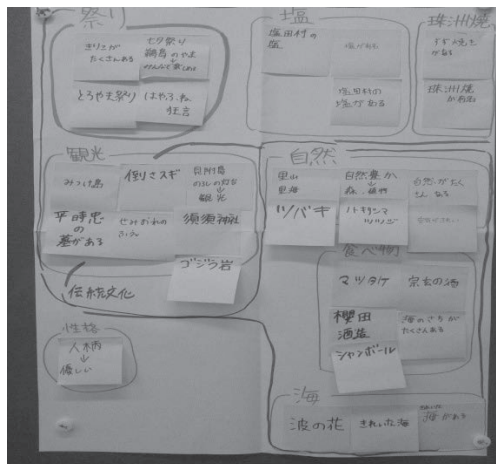 祭り
キリコが
たくさんある
七夕祭り
とろやま祭り
狂言
塩
塩田村の
塩
塩田村の
塩がある
珠洲焼
すず焼き
がある
珠洲焼
が有名
観光
みつけ島
倒さスギ
見附島
観光
平時忠
の
墓がある
須須神社
ゴジラ岩
伝統文化
自然
里山
里海
自然豊か
↓
森、植物
自然がたく
さんある
ツバキ
ノトキリシマ
ツツジ
食べ物
マツタケ
宗玄の酒
櫻田
酒造
海のさちが
たくさんある
シャンボール
性格
人柄
↓
優しい
海
波の花
きれいな海
海がある